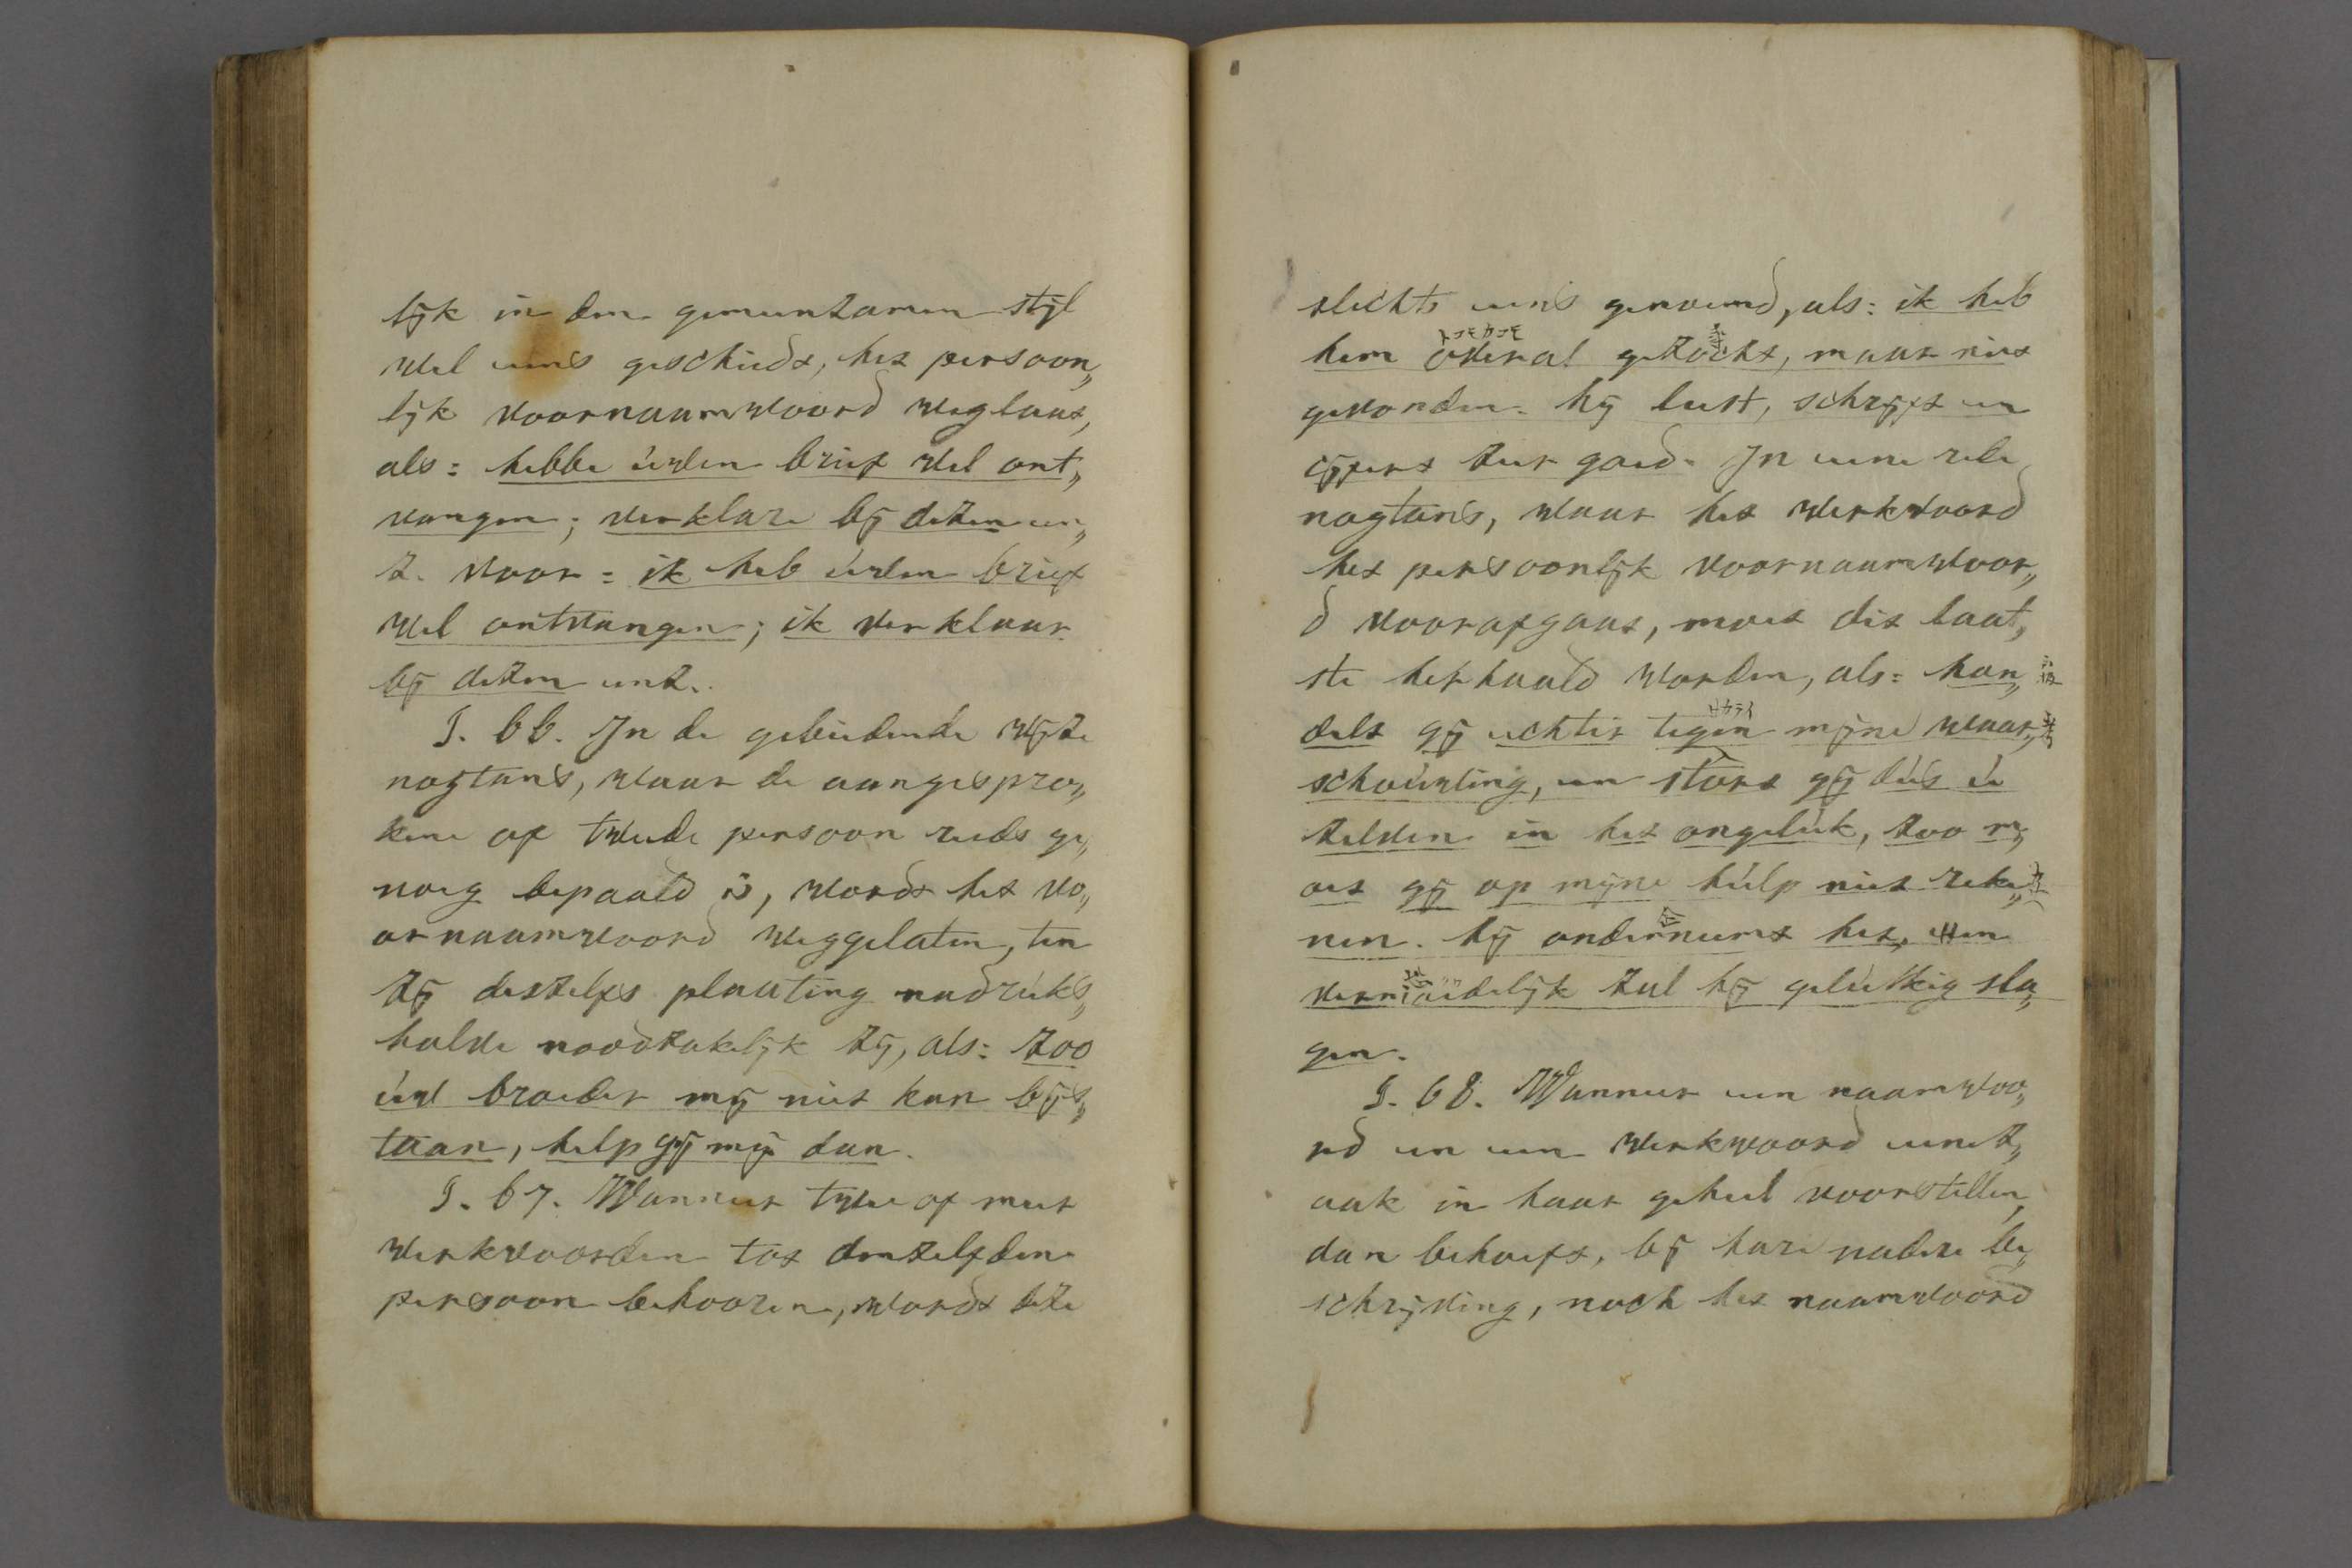 lijk in den gemeenzamen stijl
wel eens geschiedt, het persoon„
lijk voornaamwoord weglaat,
als: hebbe uwen brief wel ont„
vangen; verklare bij dezen en„
z. voor: ik heb uwen brief
wel ontvangen; ik verklaar
bij dezen enz.
§. 66. In de gebiedende wijze
nogtans, waar de aangespro„
kene of tweede persoon reeds ge„
noeg bepaald is, wordt het vo„
ornaamwoord weggelaten, ten
zij deszelfs plaatsing nadruks„
halve noodzakelijk zij, als: zoo
uw broeder mij niet kan bijs„
taan, help gij mij dan.
§. 67. Wanneer twee of meer
werkwoorden tot denzelfden
persoon behooren, wordt deze
slechts eens genoemd, als: ik heb
hem overal gezocht, maar niet
gevonden. hij leest, schrijft en
cijfert zeer goed. In eene rede
nogtans, waar het werkwoord
het persoonlijk voornaamwoor„
d voorafgaat, moet dit laat„
ste herhaald worden, als: han„
delt gij echter tegen mijne waar„
schouwing, en stort gij dus u
zelven in het ongeluk, zoo m„
oet gij op mijne hulp niet reke„
nen. hij onderneemt het, en
vermoedelijk zal hij gelukkig sla„
gen.
§. 68. Wanneer een naamwoo„
rd en een werkwoord eene z„
aak in haar geheel voorstellen,
dan behoeft, bij hare nadere be„
schrijving, noch het naamwoord